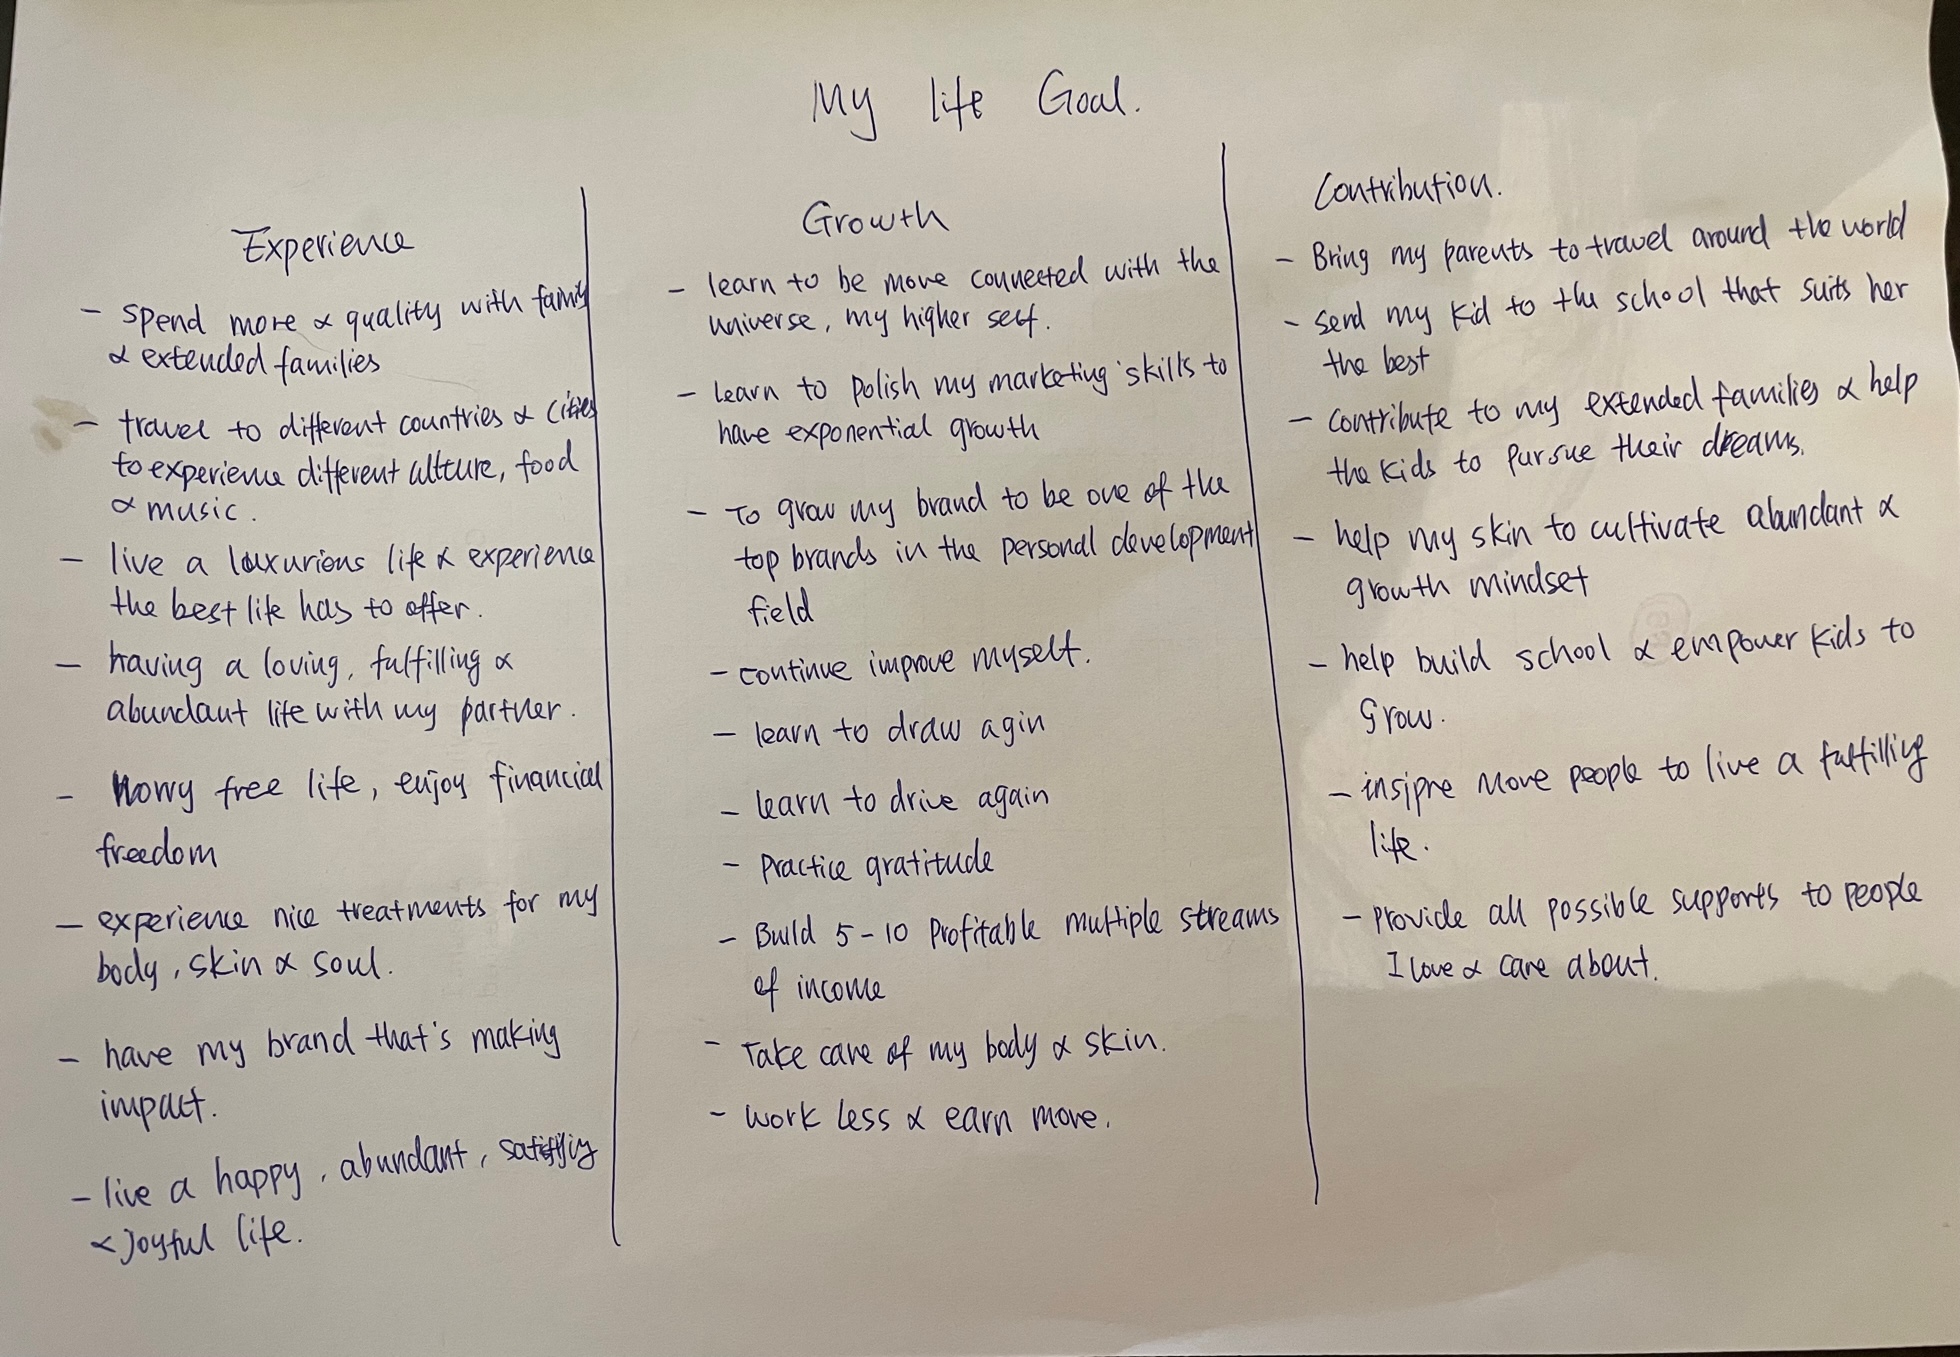 My life Goal.
Experience
- spend more & quality with family
& extended families
- travel to different countries & cities
to experience different ulture, food
& music.
- live a luxurious life & experience
the best life has to offer.
- having a loving, fulfilling &
abundant life with my partner.
- Worry free life, enjoy financial
freedom
- experience nice treatments for my
body, skin & soul.
- have my brand that's making
impact.
- live a happy, abundant,
& Joyful life.
Growth
- learn to be more connected with the
universe, my higher self.
- learn to polish my marketing skills to
have exponential growth
- To grow my brand to be one of the
top brands in the personal development
field
- continue improve myself.
- learn to draw agin
- learn to drive again
- Practice gratitude
- Build 5-10 Profitable multiple streams
of income
- Take care of my body & skin.
- work less & earn more.
Contribution.
- Bring my parents to travel around the world
- send my kid to the school that suits her
the best
- contribute to my extended families & help
the kids to pursue their dreams.
- help my skin to cultivate abundant &
growth mindset
- help build school & empower kids to
Grow.
- insipre more people to live a fulfilling
life.
- provide all possible supports to people
I love & care about.